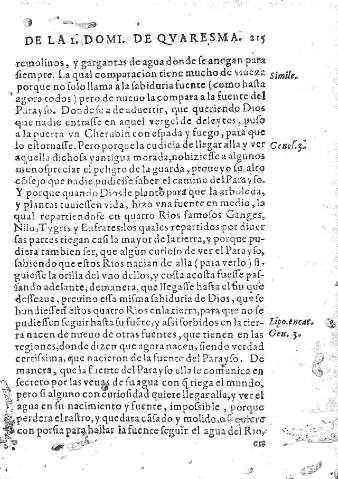 DE LA I. DOMI. DE QVARESMA. 215
remolinos, y gargantas de agua donde se anegan para
siempre. La qual comparacion tiene mucho de viueza
Simile.
porque no solo llama a la sabiduria fuente (como hasta
agora todos) pero de nueuo la compara a la fuente del
Parayso. Donde se a de aduertir, que queriendo Dios
que nadie entrasse en aquel vergel de deleytes, puso
a la puerta vn Cherubin con espada y fuego, para que
lo estoruasse. Pero porque la cudicia de llegar alla y ver
Genes. 3.
aquella dichosa y antigua morada, no hiziesse a algunos
menospreciar el peligro de la guarda, proueyo su alto
cōsejo que nadie pudiesse saber el camino del Parayso.
Y porque quando Dios le planto para que la arboleda,
y plantas tuuiessen vida, hizo vna fuente en medio, la
qual repartiendose en quatro Rios famosos Ganges,
Nilo, Tygris y Eufrates: los quales repartidos por diuer
sas partes riegan casi la mayor de la tierra, y porque pu-
diera tambien ser, que algun curioso de ver el Parayso,
sabiendo que estos Rios nacian de alla (para verlo) si-
guiesse la orilla del vno dellos, y costa a costa fuesse pas-
sando adelante, demanera, que llegasse hasta el fin que
desseaua, preuino essa misma sabiduria de Dios, que se
hundiessen estos quatro Rios en la tierra, para que no se
pudiessen seguir hasta su fuēte, y assi sorbidos en la tier-
Lipo. encar.
ra nacen de nueuo de otras fuentes, que tienen en las
Gen. 3.
regiones, donde dizen que agora nacen, siendo verdad
certissima, que nacieron de la fuente del Parayso. De
manera, que la fuente del Parayso ella se comunica en
secreto por las venas de su agua con q̄ riega el mundo,
pero si alguno con curiosidad quiere llegar alla, y ver
el agua en su nacimiento y fuente, impossible, porque
perdera el rastro, y quedara cāsado y molido, o si quiere
con porfia para hallar la fuente seguir el agua del Rio,